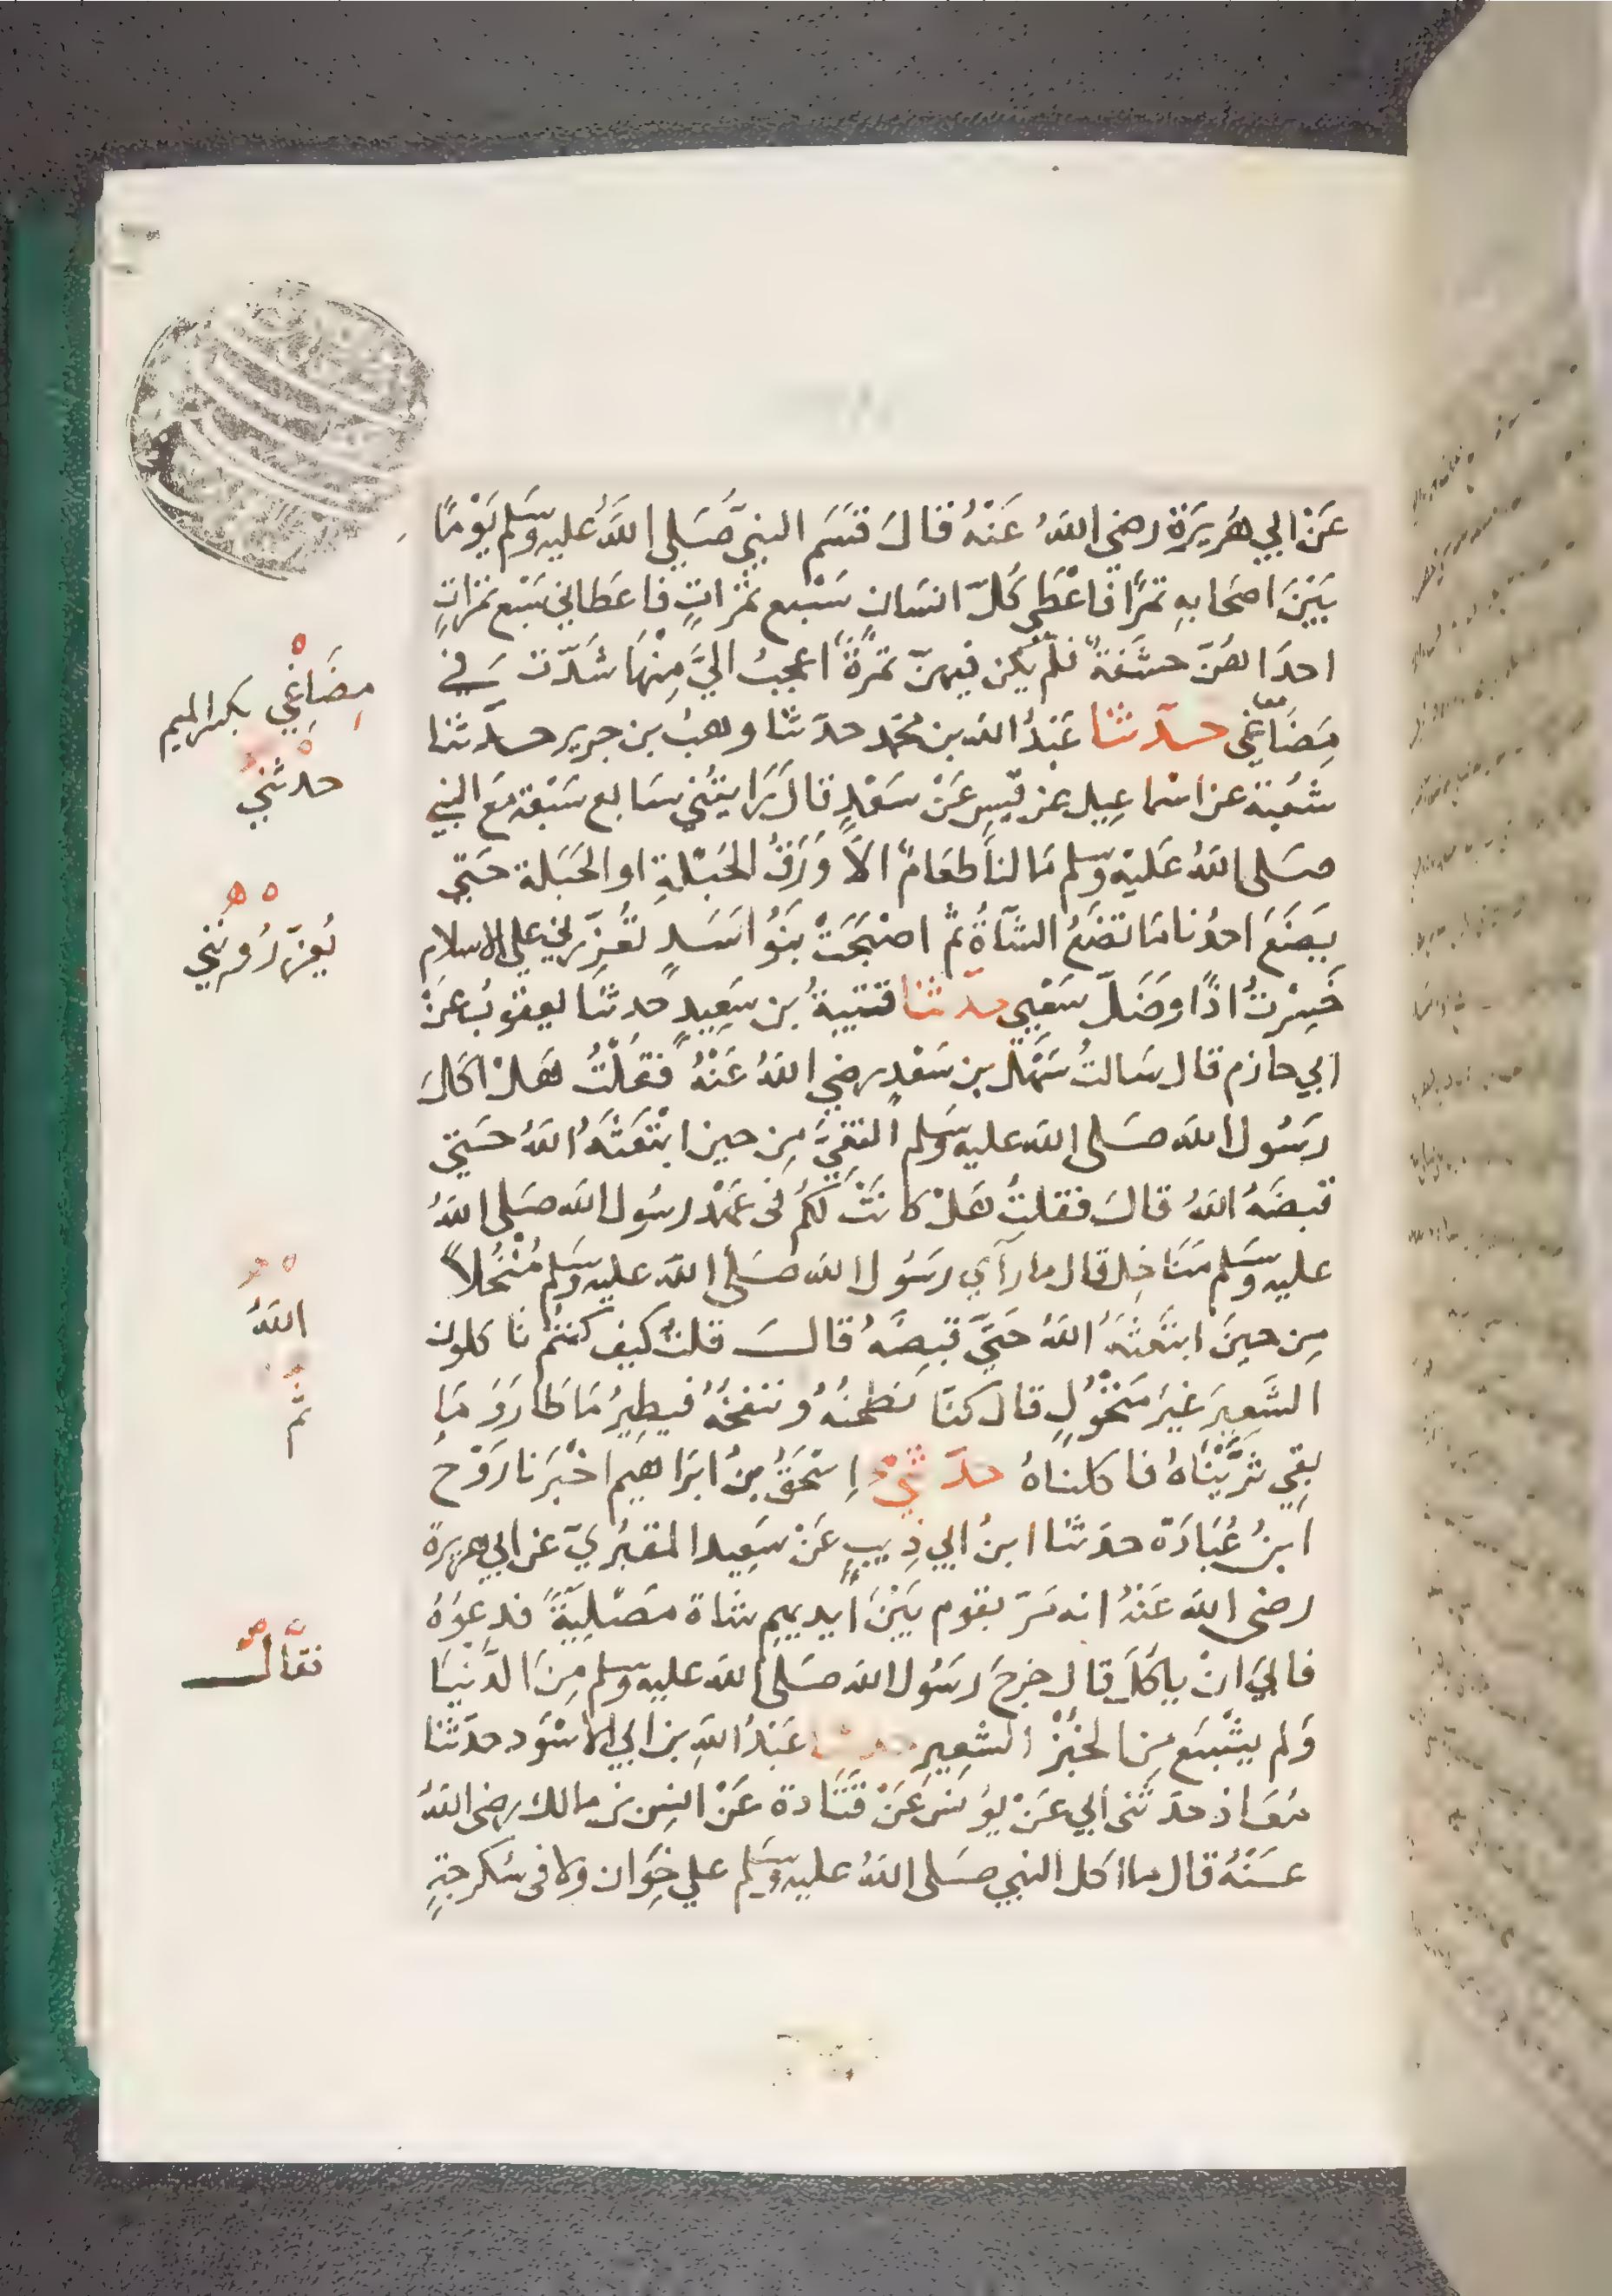 عَنْ ابي هُرَيرَة رضي اللهُ عَنْهُ قالَ قسَمَ النبيُّ صَلي اللهُ عليه وسَلم يَوْمًا
بَيْنَ اصحَابهِ تمرًا فاعْطَي كلَّ انسَان سَبْع تمرَاتٍ فاعطَاني سَبْع تمرَاتٍ
احدَاهنّ حشَفةٌ فلم يكن فيهنّ تمرَةٌ اعجبُ اليَّ مِنْهَا شدّت في
مِضَاغي حدّثنا عَبْدُ الله بن محمّد حدّثنا وهبُ بن جرير حدّثنا
شعْبَة عن اسْماعِيل عن قَيسٍ عَنْ سَعْدٍ قال رَايتُني سَابع سَبْعَة مَع النبي
صَلى اللهُ عَليْه وسلم مَا لنا طعَامٌ الاّ وَرَقُ الحُبْلةِ او الحَبَلة حَتي
يَضَعَ احدُنا مَا تضَعُ الشّاةُ ثمّ اصْبَحَتْ بَنُو اسَدٍ تُعَزّرني علي الاسلام
خَسِرْتُ اذًا وَضَلّ سَعْيي حدّثنا قتيبةُ بن سَعِيدٍ حدثنَا يعقوبُ عَنْ
ابي حازم قال سَالتُ سَهْل بن سَعْدٍ رضي اللهُ عَنْهُ فقلْتُ هَلْ اكلَ
رَسُول الله صَلى الله عليه وسَلم النَّقِيَّ مِن حين ابْتَعَثَهُ اللهُ حَتي
قبضَهُ اللهُ قالَ فقلتُ هَلْ كانَتْ لكمْ في عَهْد رسُول الله صَلى اللهُ
عليه وسَلم مَنَاخِل قال ما رآي رَسُول الله صَلى الله عليه وسَلم مُنْخُلاً
مِن حينَ ابتَعَثَهُ اللهُ حَتيَّ قبضَهُ قالَ قلتُ كيف كنتُم تاكلون
الشَّعِيرَ غَيْرَ مَنْخُولٍ قال كنّا نَطْحَنُهُ وننفخُهُ فيَطِيرُ مَا طَارَ وَمَا
بقِيَ ثَرَّيْنَاهُ فاكلناهُ حدّثني اِسْحَقُ بنُ ابرَاهيم اخْبَرَنا رَوْحُ
ابنُ عُبَادَة حدثنا ابنُ ابي ذِيبٍ عَنْ سَعِيد المقبُريّ عن ابي هريرة
رضى الله عَنْهُ انه مَرّ بقوم بَيْنَ ايديهم شاة مَصْلِيّةٌ فدعَوْهُ
فابيَ انْ ياكلَ قال خرجَ رَسُول الله صَلى الله عليه وسلم مِنَ الدُّنيَا
وَلم يشْبَع مِن الخبْز الشعِير حدثنا عَبْدُ اللهِ بن ابي الاسْوَد حدّثنا
مُعَاذ حدّثني ابي عَنْ يونسَ عَنْ قَتَادة عَنْ انس بن مالك رضى اللهُ
عَنْهُ قال ما اكل النبي صَلى اللهُ عليه وسَلم علي خِوَان ولا في سُكرجةٍ
مِضَاغِي بكسر الميم
حدثني
يُعَزّرُونَنِي
اللهُ
ثمّ
فقال